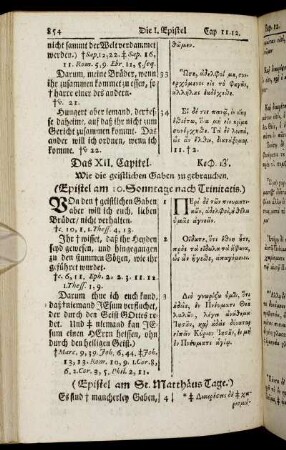 854 Die I. Epistel Cap 11.12.
nicht sammt der Welt verdammet
werden.) †Sap.12,22.‡Sap. 16,
11. Rom. 5,9. Ebr. 12, 5. seq.
Darum, meine Brüder, wenn
ihr zusammen kommet zu essen, so
†harre einer des andern.
†v. 21.
Hungert aber jemand, der esse
daheim, auf daß ihr nicht zum
Gericht zusammen kommet. Das
ander will ich ordnen, wenn ich
komme. †v 22.
Das XII. Capitel.
Wie die geistlichen Gaben zu gebrauchen.
(Epistel am 10. Sonntage nach Trinitatis.)
VOn den † geistlichen Gaben
aber will ich euch, lieben
Brüder/ nicht verhalten.
†c. 10, 1. 1. Thess. 4, 13.
Ihr † wisset, daß ihr Heyden
seyd gewesen, und hingegangen
zu den stummen Götzen, wie ihr
geführet wurdet.
†c. 6, 11. Eph. 2. 2. 3. 11. 12
1. Thess. 1, 9.
Darum thue ich euch kund,
daß †niemand JEsum verfluchet,
der durch den Geist GOttes re
det. Und ‡ niemand kan JE-
sum einen HErrn heissen, ohn
durch den heiligen Geist.)
†Marc. 9, 39. Joh. 6, 44. ‡Joh.
13, 13. Rom. 10, 9. 1. Cor. 8,
6. 2. Cor. 3, 5. Phil. 2, 11.
(Epistel am St. Matthäus Tage.)
Es sind † mancherley Gaben,
33
34
1
2
3
4
θῶμεν.
Ὥστε, ἀδελφοί μȣ, συν-
ερχόμενοι εἰς τὸ φαγεῖν,
ἀλλήλȣς ἐκδέχεσθε.
Εἰ δέ τις πεινᾷ, ἐν οἴκῳ
ἐσθιέτω, ἵνα μὴ εἰς κρίμα
συνέρχησθε. Τὰ δὲ λοιπὰ,
ὡς ἂν ἔλθω, διατάξομαι.
11.†2.
Κεφ. ιβʹ.
Περὶ δὲ τῶν πνευματι-
κῶν, ἀδελφοὶ, ȣ θέλω
ὑμᾶς ἀγνοεῖν.
Οἴδατε, ὅτι ἔθνη ἦτε,
πρὸς τὰ εἴδωλα τὰ ἄφωνα,
ὡς ἂν ἤγεσθε, ἀπαγόμενοι.
Διὸ γνωρίζω ὑμῖν, ὅτι
ȣδεὶς, ἐν Πνεύματι Θεȣ
λαλῶν, λέγει ἀνάθεμα
Ἰησȣν· καὶ ȣδεὶς δύναται
εἰπεῖν Κύριον Ἰησȣν, εἰ μὴ
ἐν Πνεύματι ἁγίῳ.
* ‡ Διαιρέσεις δὲ ‡ χα-
ρισμά-